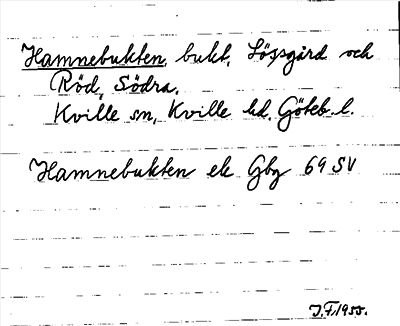 Hamnebukten, bukt, Lössgård och
Röd, Södra.
Kville sn, Kville hd, Göteb. l.
Hamnebukten ek Gbg 69 SV
J.F. 1955.